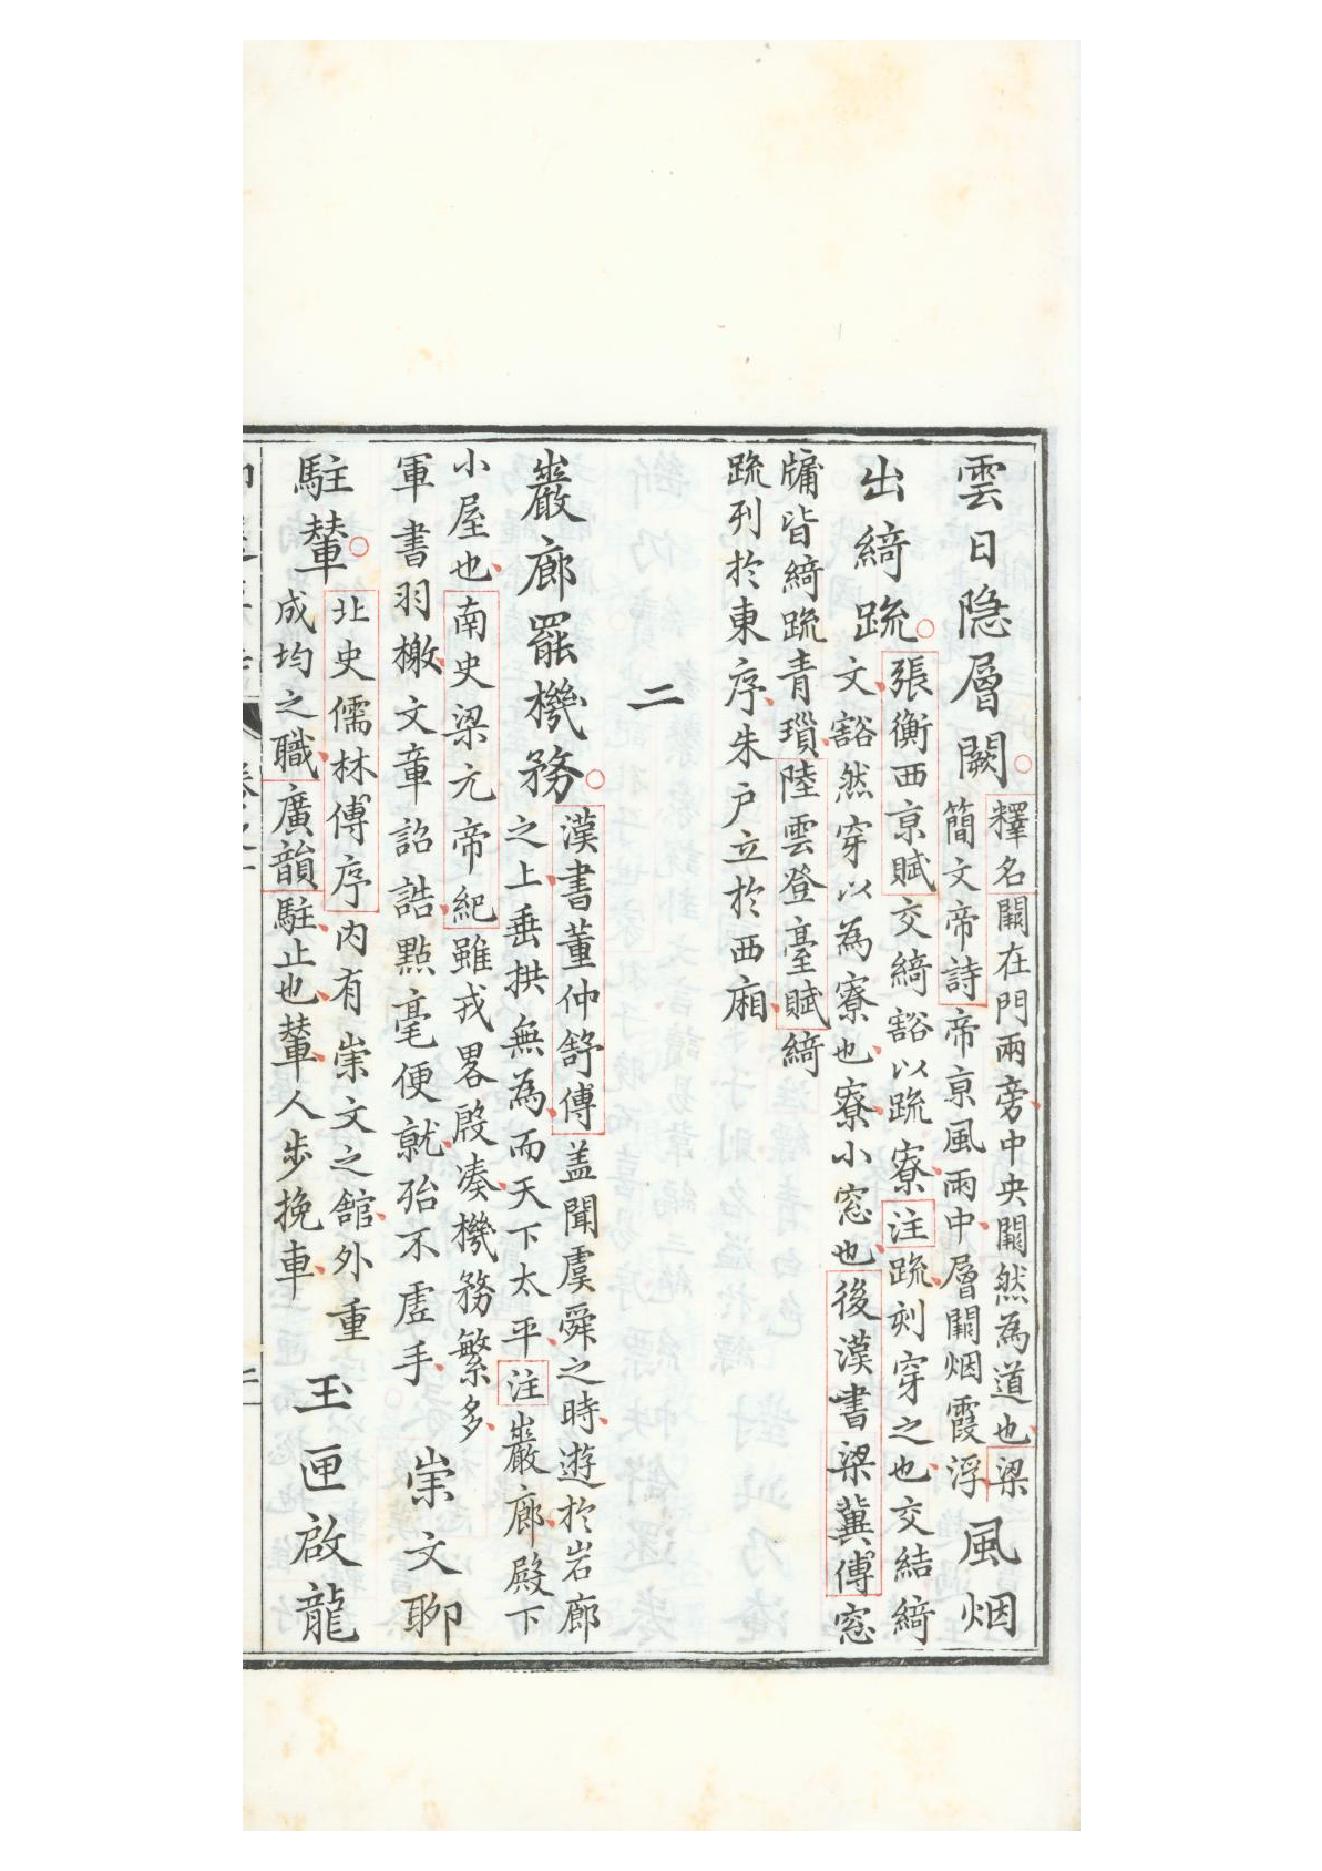 雲日隐層闕
釋名闕在門兩旁中央闕然為道也梁
簡文帝詩帝京風雨中層闕烟霞浮
風烟
出綺䟽
張衡西京賦交綺豁以䟽寮注䟽刻穿之也交結綺
文豁然穿以為寮也寮小窓也後漢書梁冀傳窓
牖皆綺䟽青瑣陸雲登臺賦綺
䟽列於東序朱户立於西廂
二
巖廊罷機務
漢書董仲舒傳盖聞虞舜之時遊於岩廊
之上垂拱無為而天下太平注巖廊殿下
小屋也南史梁元帝紀雖戎畧殷湊機務繁多
軍書羽檄文章詔誥點毫便就殆不虚手
崇文聊
駐輦
北史儒林傳序内有崇文之舘外重
成均之職廣韻駐止也輦人步挽車
玉匣啟龍